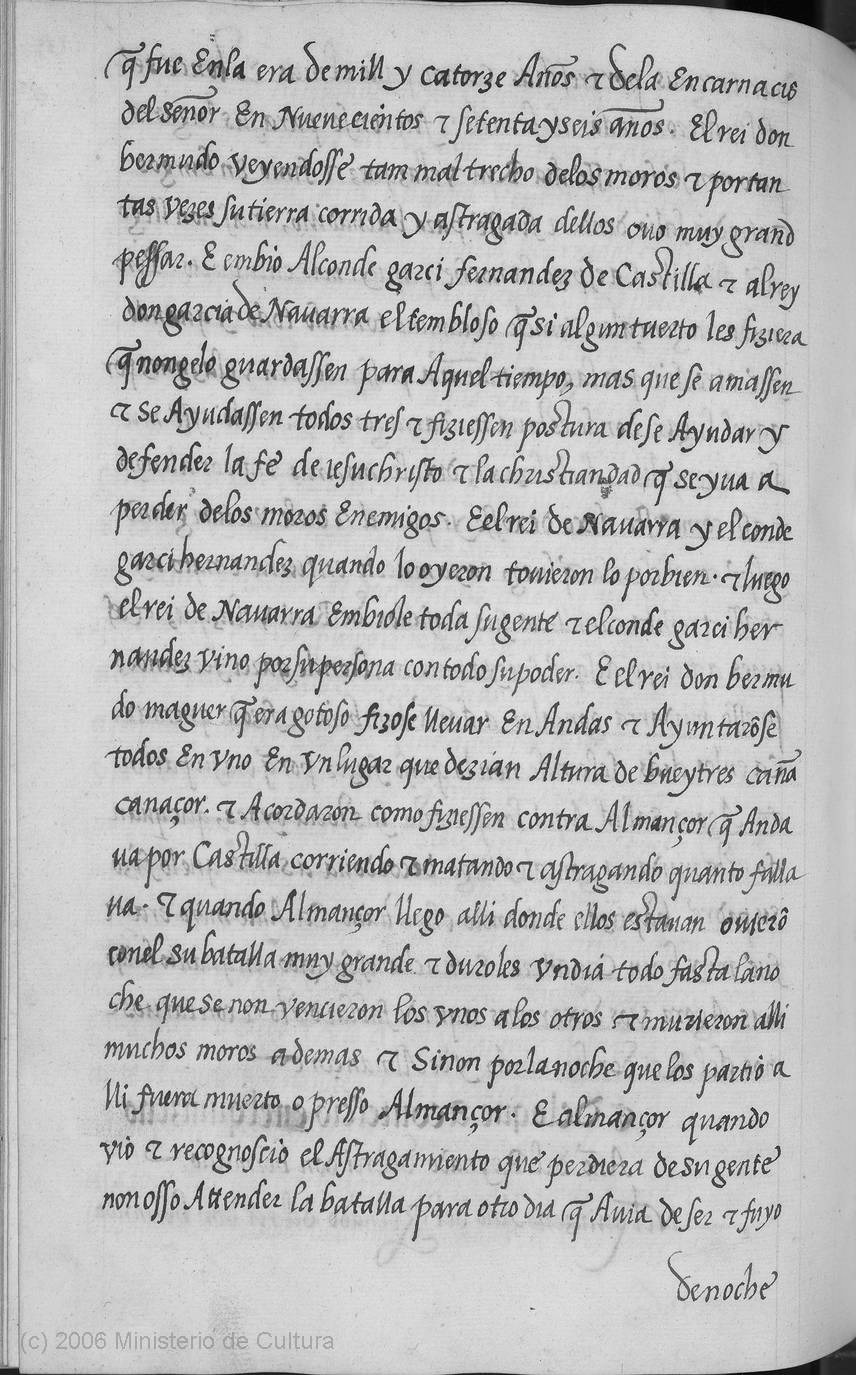 q̃ fue Enla era de mill y catorze Años τ dela Encarnacio
del señor En Nueveçientos τ setenta y seis años. El rei don
bermudo veyendosse tam mal trecho delos moros τ por tan
tas vezes su tierra corrida y astragada dellos ouo muy grand
pessar. E embio Al conde garci fernandez de Castilla τ al rey
don garcia de Nauarra el tembloso q̃ si algun tuerto les fiziera
q̃ non gelo guardassen para Aquel tiempo, mas que se amassen
τ se Ayudassen todos tres τ fiziessen postura de se Ayudar y
defender la fe de iesu christo τ la christiandad q̃ se yua a
perder delos moros Enemigos. E el rei de Nauarra y el conde
garci hernandez quando lo oyeron touieron lo por bien. τ luego
el rei de Nauarra Embiole toda su gente τ el conde garci her
nandez vino por su persona con todo su poder. E el rei don bermu
do maguer q̃ era gotoso fizose lleuar En Andas τ Ayuntarõse
todos En vno En vn lugar que dezian Altura de bueytres cañā
canaçor. τ Acordaron como fiziessen contra Almançor q̃ Anda
ua por Castilla corriendo τ matando τ astragando quanto falla
ua. τ quando Almançor llego alli donde ellos estauan ouierõ
con el su batalla muy grande τ duroles vn dia todo fasta la no
che que se non vencieron los vnos a los otros τ murieron alli
muchos moros ademas τ Sinon por la noche que los partio a
lli fuera muerto o presso Almançor. E almançor quando
vio τ recognoscio el Astragamiento que perdiera de su gente
non osso Attender la batalla para otro dia q̃ Auia de ser τ fuyo
de noche
(c) 2006 Ministerio de Cultura